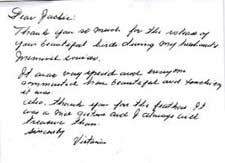 Dear Jackie:
Thank you so much for the release of
your beautiful birds during my husband's
Memorial service.
It was very special and everyone
commented how beautiful and touching
it was.
Also, thank you for the feathers. It
was a nice gesture and I always will
treasure them.
Sincerely
Victoria